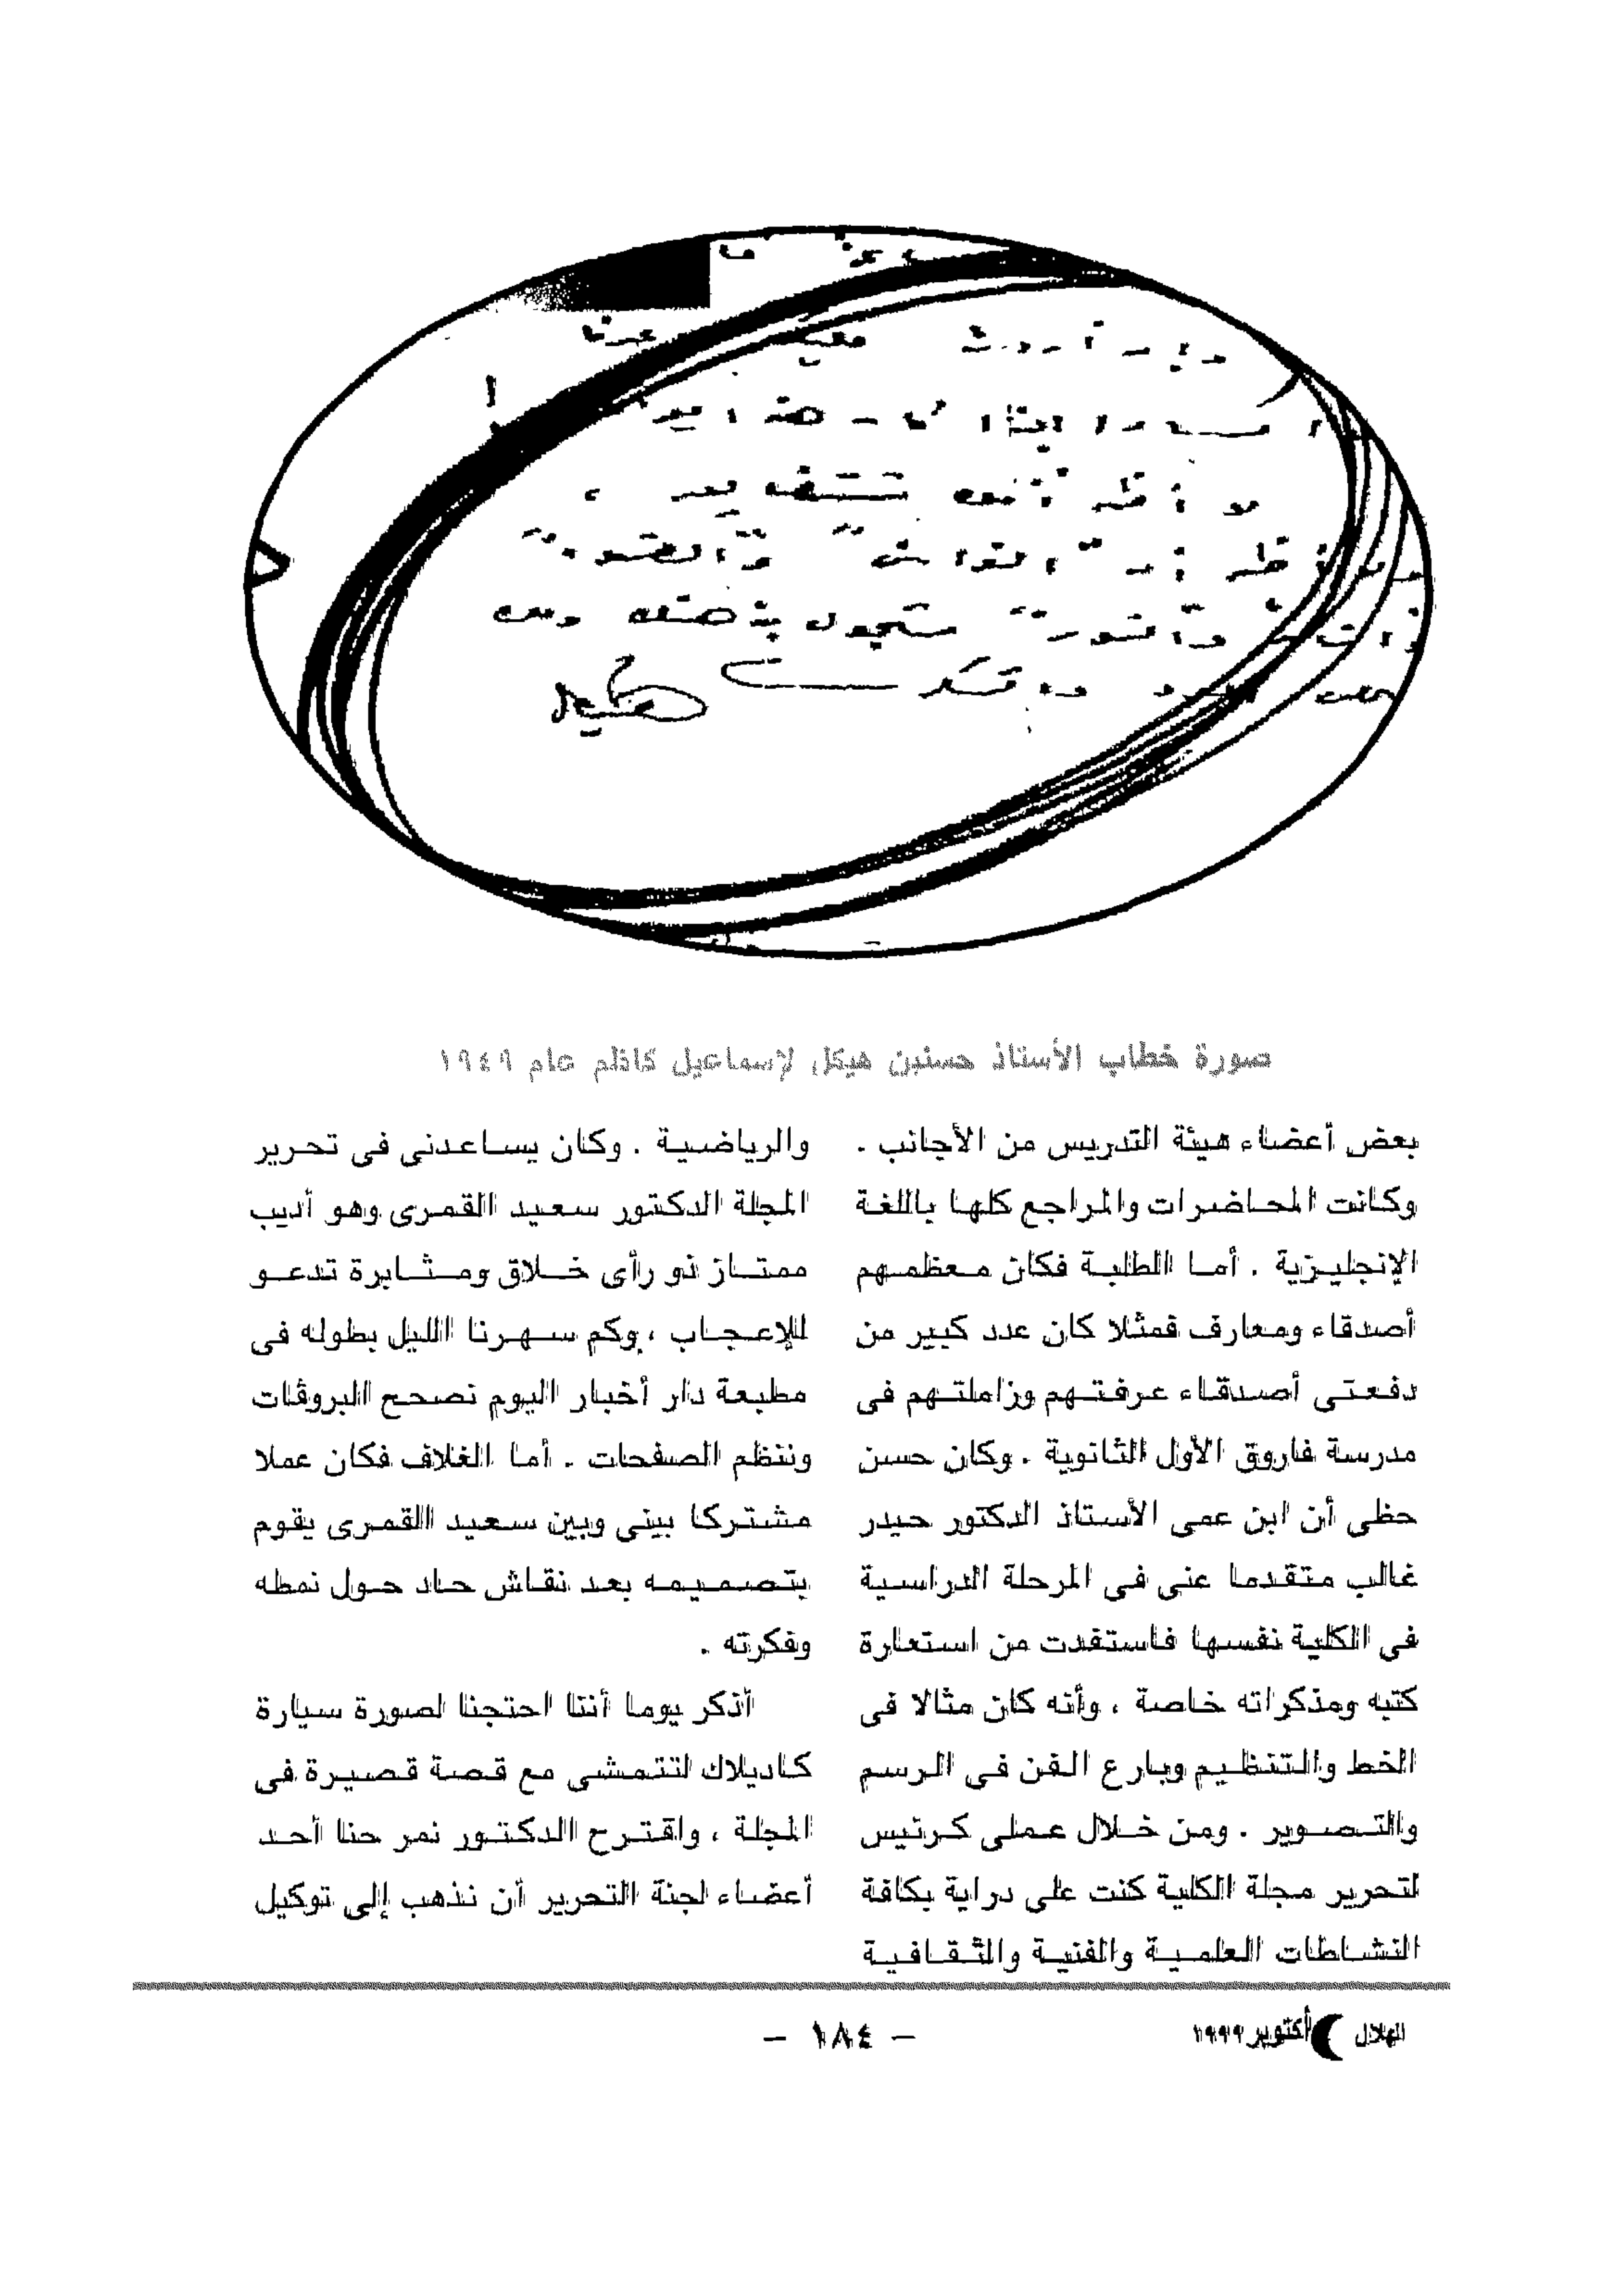 صورة خطاب الأستاذ حسنين هيكل لإسماعيل كاظم عام ١٩٤٩
بعض أعضاء هيئة التدريس من الأجانب .
وكانت المحاضرات والمراجع كلها باللغة
الإنجليزية . أما الطلبة فكان معظمهم
أصدقاء ومعارف فمثلا كان عدد كبير من
دفعتى أصدقاء عرفتهم وزاملتهم فى
مدرسة فاروق الأول الثانوية . وكان حسن
حظى أن ابن عمى الأستاذ الدكتور حيدر
غالب متقدما عنى فى المرحلة الدراسية
فى الكلية نفسها فاستفدت من استعارة
كتبه ومذكراته خاصة ، وأنه كان مثالا فى
الخط والتنظيم وبارع الفن فى الرسم
والتصوير . ومن خلال عملى كرئيس
لتحرير مجلة الكلية كنت على دراية بكافة
النشاطات العلمية والفنية والثقافية
والرياضية . وكان يساعدنى فى تحرير
المجلة الدكتور سعيد القمرى وهو أديب
ممتاز ذو رأى خلاق ومثابرة تدعو
للإعجاب ، وكم سهرنا الليل بطوله فى
مطبعة دار أخبار اليوم نصحح البروڤات
وننظم الصفحات . أما الغلاف فكان عملا
مشتركا بينى وبين سعيد القمرى يقوم
بتصميمه بعد نقاش حاد حول نمطه
وفكرته .
أذكر يوما أننا احتجنا لصورة سيارة
كاديلاك لتتمشى مع قصة قصيرة فى
المجلة ، واقترح الدكتور نمر حنا أحد
أعضاء لجنة التحرير أن نذهب إلى توكيل
الهلال أكتوبر ١٩٩٩
– ١٨٤ –